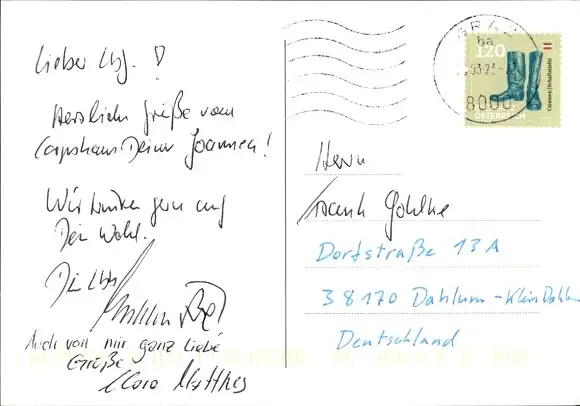 Lieber Cbr. !
Herzliche Grüße vom
Corpshaus Deiner Joannea !
Wir trinken gern auf
Dein Wohl.
Dein Cbr.
Auch von mir ganz liebe
Grüße
Clara Matthes
GRAZ
8000
120
Cosmen/Schaftstiefel
ÖSTERREICH
Herrn
Frank Gohlke
Dorfstraße 13 A
38170 Dahlum - Klein Dahlum
Deutschland